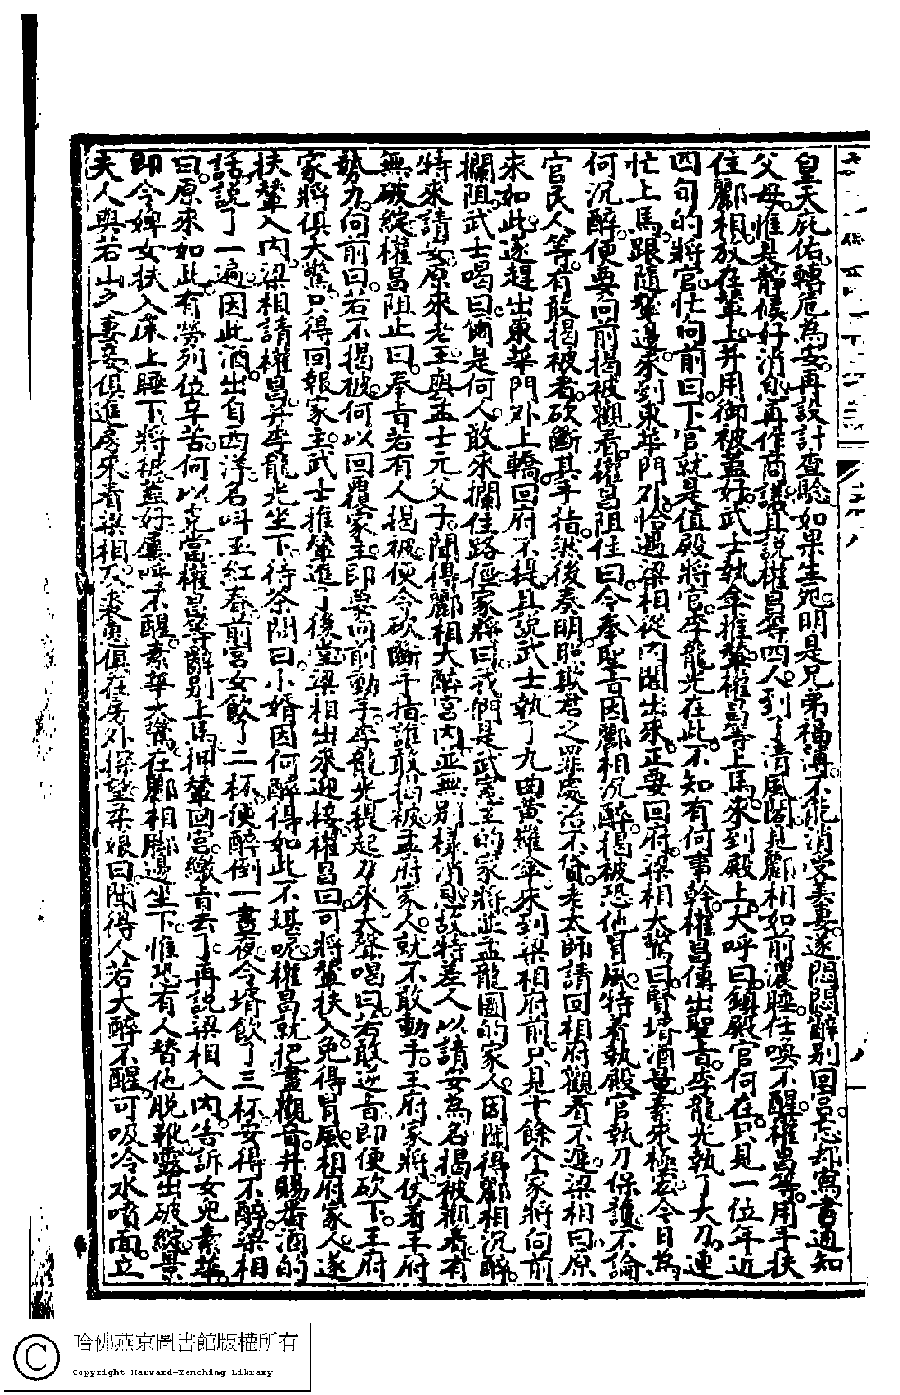 皇天庇佑轉危為安再設計查驗如果生死明是兄弟福薄不能消受美妻遂悶悶辭別回宮忘却寫書通知
父母惟是靜候好消息再作商議且說權昌等四人到了清風閣見酈相如前濃睡任喚不醒權昌等用手扶
住酈相放在輦上并用御被蓋好武士執傘推輦權昌等上馬來到殿上大呼曰鎮殿官何在只見一位年近
四旬的將官忙向前曰下官就是值殿將官李龍光在此不知有何事幹權昌傳出聖旨李龍光執了大刀連
忙上馬跟隨輦邊來到東華門外恰遇梁相從內閣出來正要回府梁相大驚曰賢壻酒量素來極宏今日為
何沉醉便要向前揭被觀看權昌阻住曰今奉聖旨因酈相沉醉揭被恐他冒風特着執殿官執刀保護不論
官民人等有敢揭被者砍斷其手指然後奏明照欺君之罪處治不貸老太師請回相府觀看不遲梁相曰原
來如此遂趕出東華門外上轎回府不提且說武士執了九曲黃羅傘來到梁相府前只見十餘個家將向前
攔阻武士喝曰爾是何人敢來攔住路徑家將曰我們是武憲王的家將並孟龍圖的家人因聞得酈相沉醉
特來請安原來老王與孟士元父子聞得酈相大醉宮內並無別樣消息故特差人以請安為名揭被觀看有
無破綻權昌阻止曰奉旨若有人揭被便令砍斷手指誰敢揭被孟府家人就不敢動手王府家將仗着王府
勢力向前曰若不揭被何以回覆家主即要向前動手李龍光提起刀來大聲喝曰若敢逆旨即便砍下王府
家將俱大驚只得回報家主武士推輦進了後堂梁相出來迎接權昌曰可將輦扶入免得冒風相府家人遂
扶輦入內梁相請權昌并李龍光坐下待茶問曰小婿因何醉得如此不堪呢權昌就把畫觀音并賜番酒的
話說了一遍因此酒出自西洋名叫玉紅春前宮女飲了二杯便醉倒一晝夜今壻飲了三杯安得不醉梁相
曰原來如此有勞列位辛苦何以克當權昌等辭別上馬押輦回宮繳旨去了再說梁相入內告訴女兒素華
即令婢女扶入床上睡下將被蓋好連呼不醒素華大驚在酈相脚邊坐下惟恐有人替他脫靴露出破綻景
夫人與若山夕妻妾俱進房來看梁相夫妻惠俱在房外探望柔娘曰聞得人若大醉不醒可吸冷水噴面立
哈佛燕京圖書館版權所有
Copyright Harvard-Yenching Library